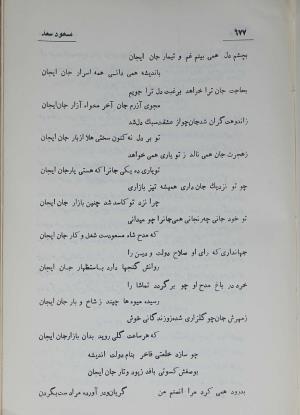 ۶۷۷ مسعود سعد
بچشم دل همی بینم غم و تیمار جان ایجان
باندیشه همی دانستی همه اسرار جان ایجان
بحاجت جان ترا خواهد برغبت دل ترا جویم
مجوی آزرم جان آخر مخواه آزار جان‌ایجان
زاندوهت گران شدجان‌چواز عشقت‌سبک‌دل‌شد
تو بر دل نه‌کنون سختی هلا ازبار جان ایجان
زهجرت جان همی نالد ز تو یاری همی خواهد
تویاری ده یکی جانرا که هستی یارجان ایجان
چو تو نزدیک جان داری همیشه تیز بازاری
چرا نزد تو کاسد شد چنین بازار جان ایجان
تو خود جانی چه‌رنجانی همی‌جانرا چو میدانی
که مدح شاه مسعودست شغل و کار جان ایجان
جهانداری که رای او صلاح دولت و دین را
روانش گنجها دارد باستظهار جان ایجان
خرد در باغ مدح او چو برگردد تماشا را
رسیده میوه‌ها چیند ز شاخ و بار جان ایجان
زمهرش جان‌چو گلزاری شده‌روزندگانی خوش
که هرساعت گلی روید بدان بازارجان ایجان
چو سازد خلعتی فاخر بنام دولت اندیشه
بوصفش کسوتی بافد زپود وتار جان ایجان
بدرود همی کرد مرا آنصنم من گریان‌ودر آورده مرا دست‌بگردن